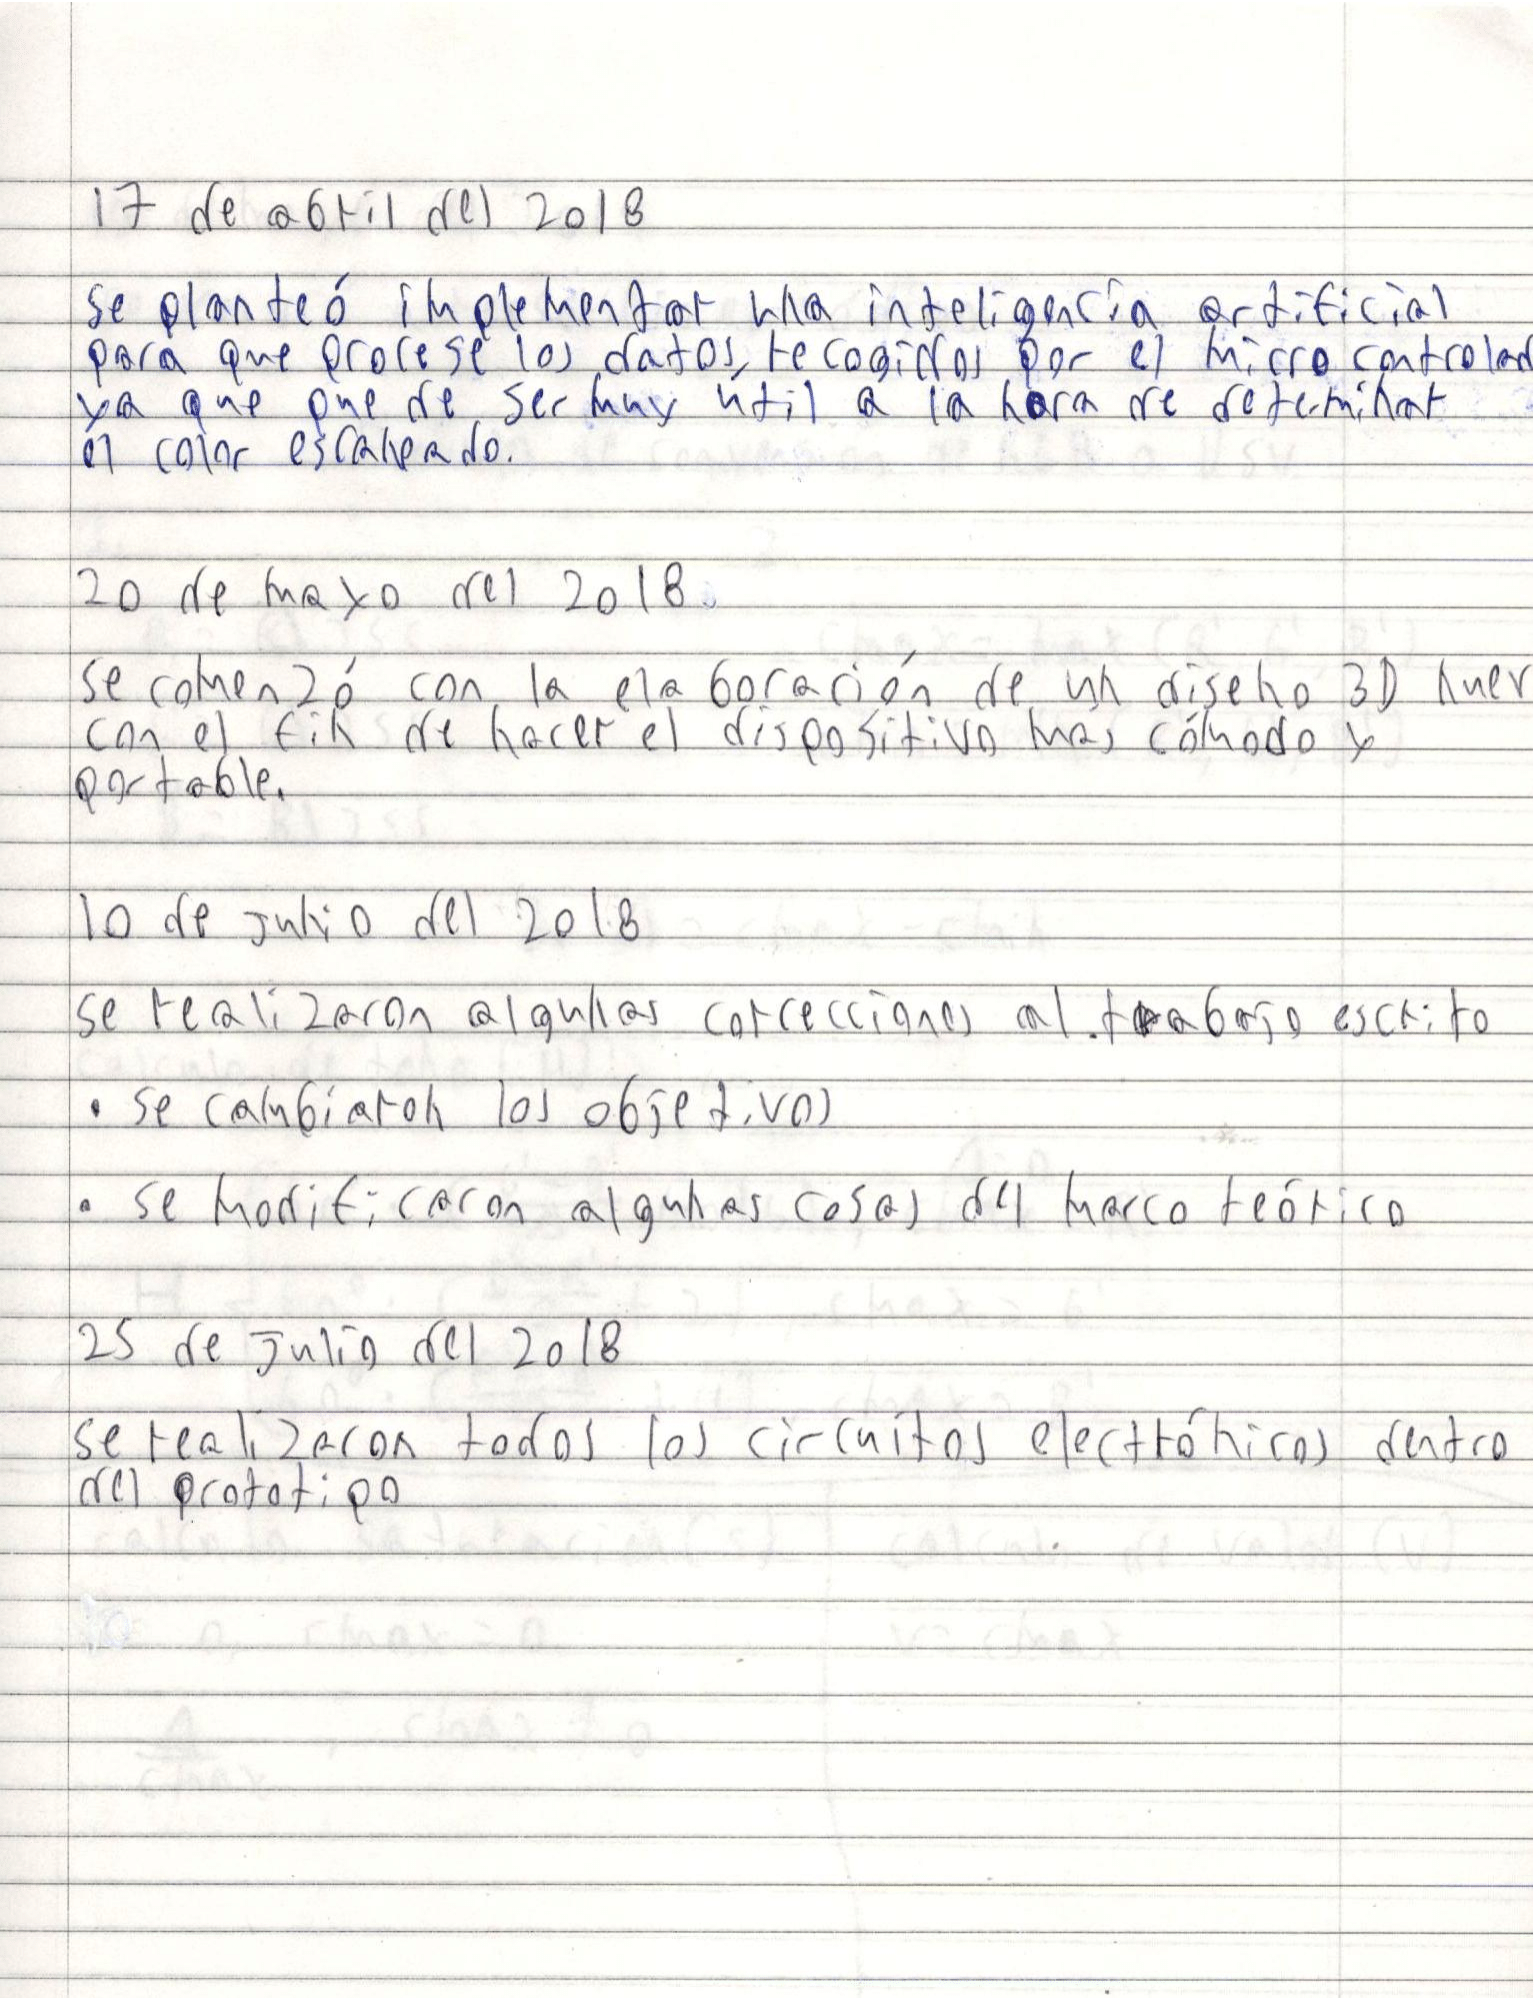 17 de abril del 2018
se planteó implementar una inteligencia artificial
para que procese los datos recogidos por el micro controlad
ya que puede ser muy útil a la hora de determinar
el color escaneado.
20 de mayo del 2018.
se comenzó con la elaboración de un diseño 3D nuev
con el fin de hacer el dispositivo mas cómodo y
portable.
10 de julio del 2018
se realizaron algunas correcciones al trabajo escrito
• se cambiaron los objetivos
• se modificaron algunas cosas del marco teórico
25 de julio del 2018
se realizaron todos los circuítos electrónicos dentro
del prototipo